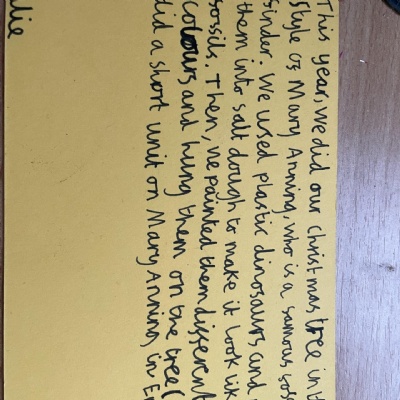 This year, we did our christmas tree in t
style of Mary Anning, who is a famous fos
finder. We used plastic dinosaurs and
them into salt dough to make it look lik
fossils. Then, we painted them different
colours and hung them on the tree (
did a short unit on Mary Anning in E
lie